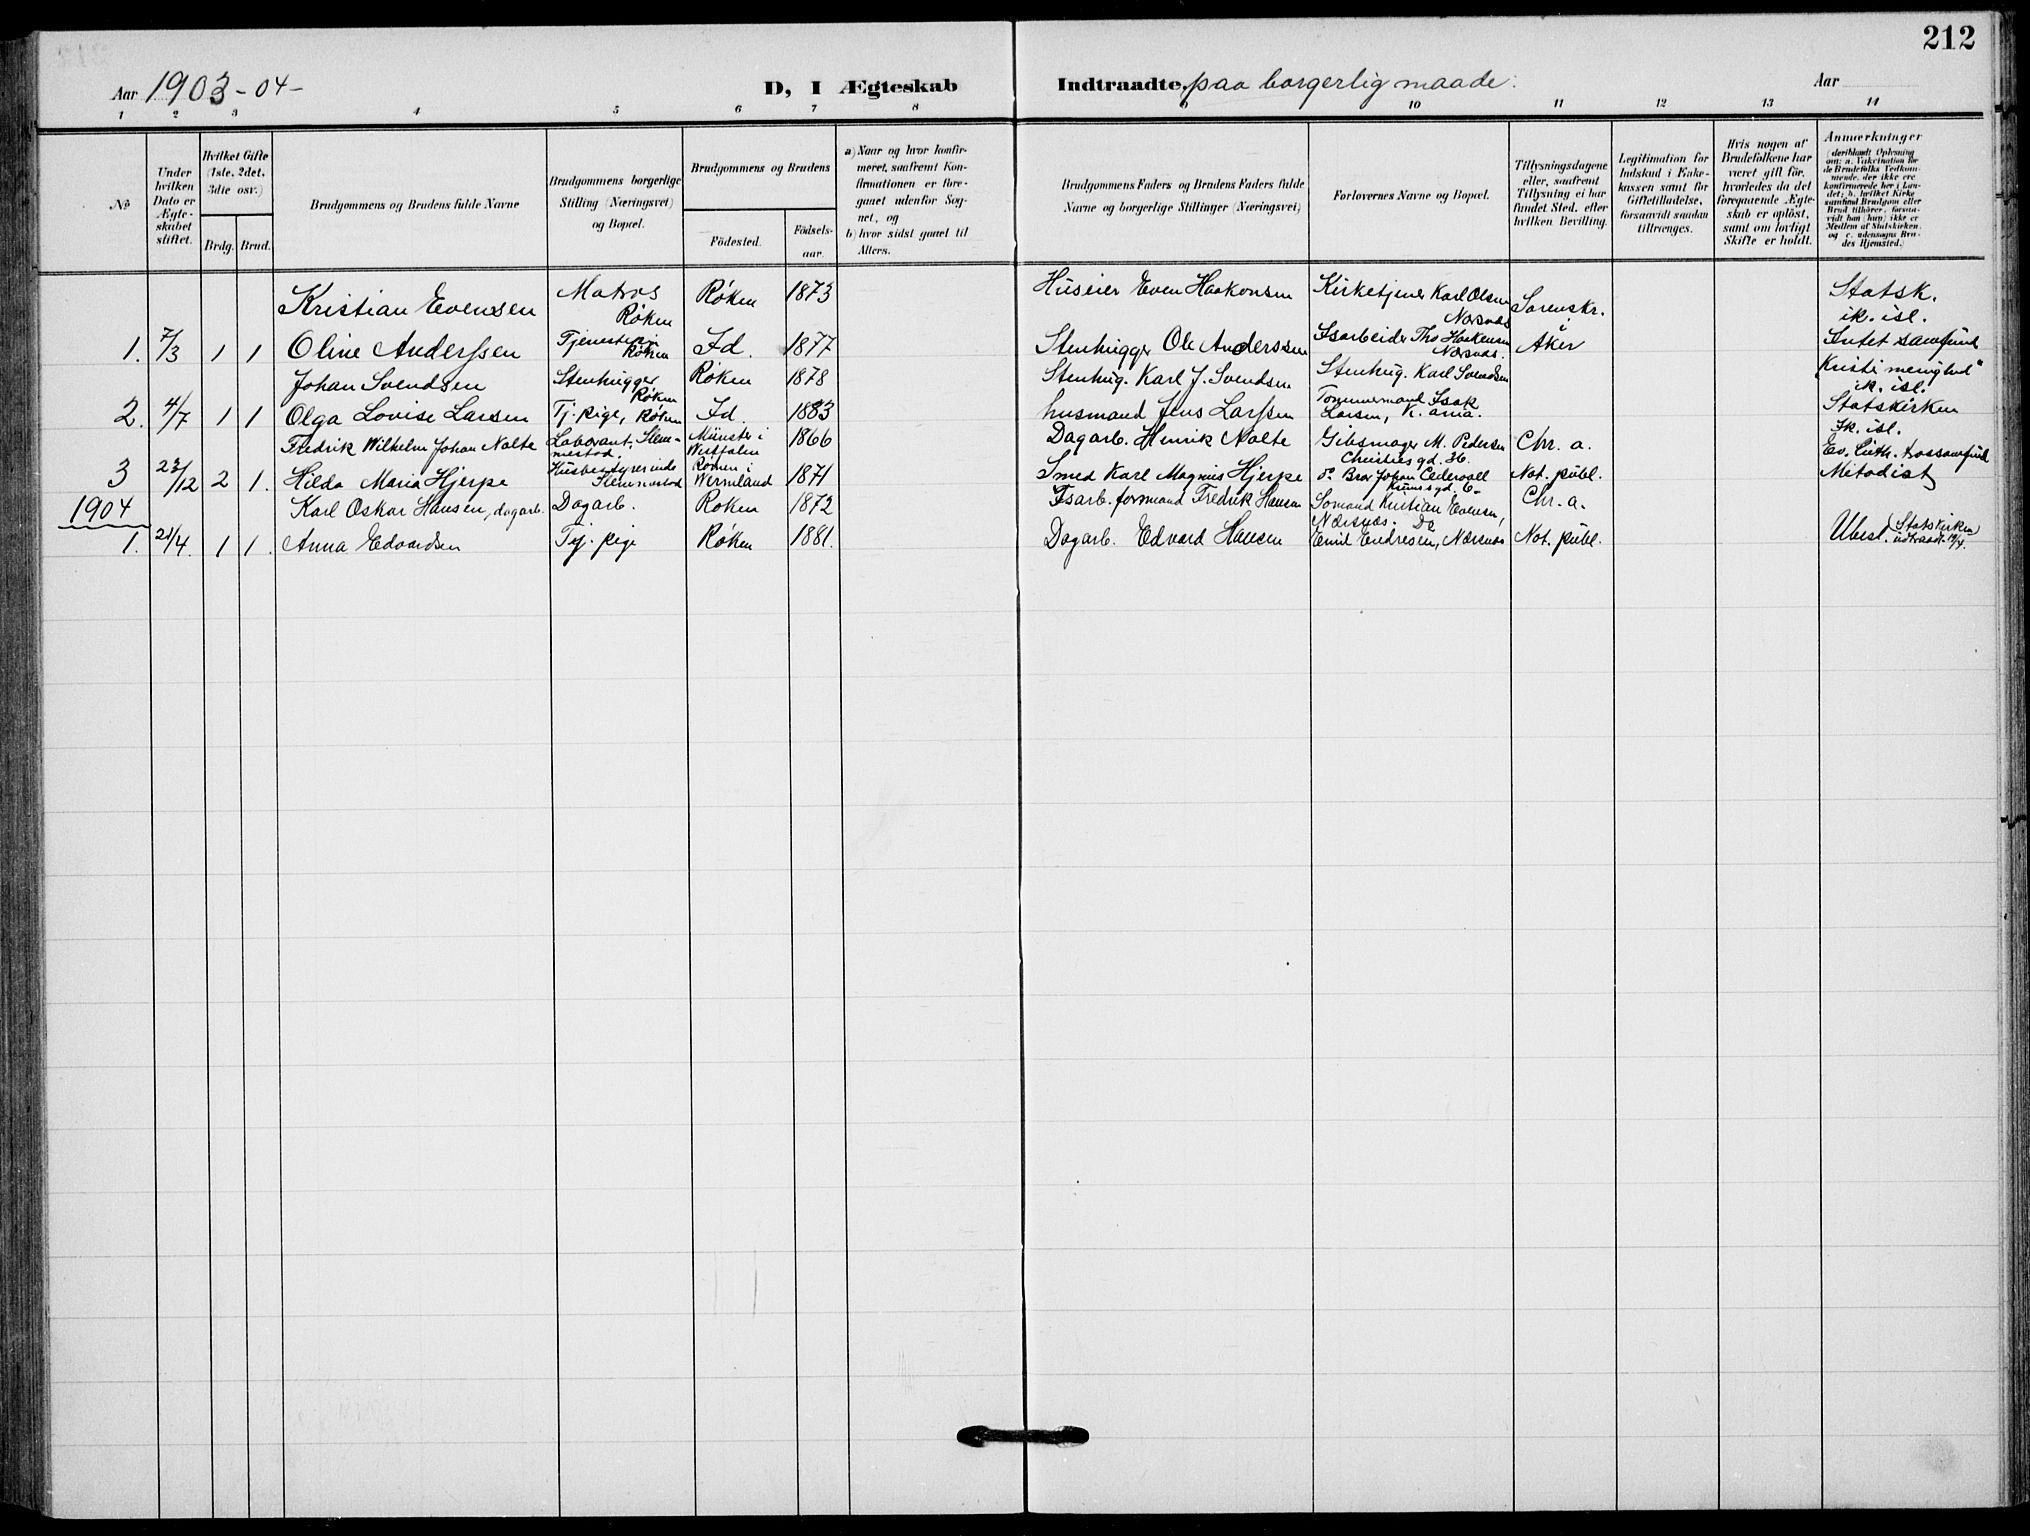 212
Aar 1903-04-
D, I Ægteskab Indtraadte, paa borgerlig maade.
Aar
1 2 3 4 5 6 7 8 9 10 11 12 13 14
№
Under hvilken Dato er Ægteskabet stiftet.
Hvilket Gifte (1ste, 2det, 3die osv.)
Brdg. Brud.
Brudgommens og Brudens fulde Navne
Brudgommens borgerlige Stilling (Næringsvei) og Bopæl.
Brudgommens og Brudens
Fødested.
Fødselsaar.
a) Naar og hvor konfirmeret, saafremt Konfirmationen er foregaaet udenfor Sognet, og
b) hvor sidst gaaet til Alters.
Brudgommens Faders og Brudens Faders fulde Navne og borgerlige Stillinger (Næringsvei)
Forlovernes Navne og Bopæl.
Tillysningsdagene eller, saafremt Tillysning ei har fundet Sted, efter hvilken Bevilling.
Legitimation for Indskud i Enkekassen samt for Giftetilladelse, forsaavidt saadan tiltrænges.
Hvis nogen af Brudefolkene har været gift før, hvorledes da det foregaaende Ægteskab er opløst, samt om lovligt Skifte er holdt.
Anmærkninger (deriblandt Oplysning om: a. Vakcination for de Brudefolks Vedkommende, der ikke ere konfirmerede her i Landet; b. hvilket Kirkesamfund Brudgom eller Brud tilhører, forsaavidt han (hun) ikke er Medlem af Statskirken, og c. udensogns Brudes Hjemsted.)
Kristian Evensen Matros Røken Røken 1873 Huseier Even Haakonsen Kirketjener Karl Olsen Nærsnæs Sorenskr. Statsk. ik. isl.
1. 7/3 1 1 Oline Anderssen Tjenestepi Røken Id. 1877 Stenhugger Ole Anderssen Isarbeider Ths Haakensen Nærsnæs. i Aker Intet samfund
Johan Svendsen Stenhugger Røken Røken 1878 Stenhug. Karl J. Svendsen Stenhug. Karl Svendsen "Kristi menighed" ik. isl.
2. 4/7 1 1 Olga Lovise Larsen Tj. pige, Røken Id. 1883 husmand Jens Larssen Tømmermand Isak Larsen, K. ania. Statskirken Ik. isl.
Fredrik Wilhelm Johan Nolte Laborant, Slemmestad. Münster i Westfalen 1866 Dagarb. Henrik Nolte Gibsmager M. Pedersen Christies gd. 36. Chr. a. Ev. Luth. trossamfund
3 23/12 2 1. Hilda Maria Hjerpe Husbestyrerinde Slemmestad Römen i Wermland 1871 Smed Karl Magnus Hjerpe Johan Cedervall Not. publ. Metodist
1904
Karl Oskar Hansen, dagarb. Dagarb. Røken 1872 Isarb. formand Fredrik Hansen Sømand Kristian Evensen, Nærsnæs. Chr. a.
1. 21/4 1 1. Anna Edvardsen Tj. pige Røken 1881. Dagarb. Edvard Hansen Emil Endresen, Nærsnæs Not. publ. Ubest. (Statskirken udtraadt 19/4.)